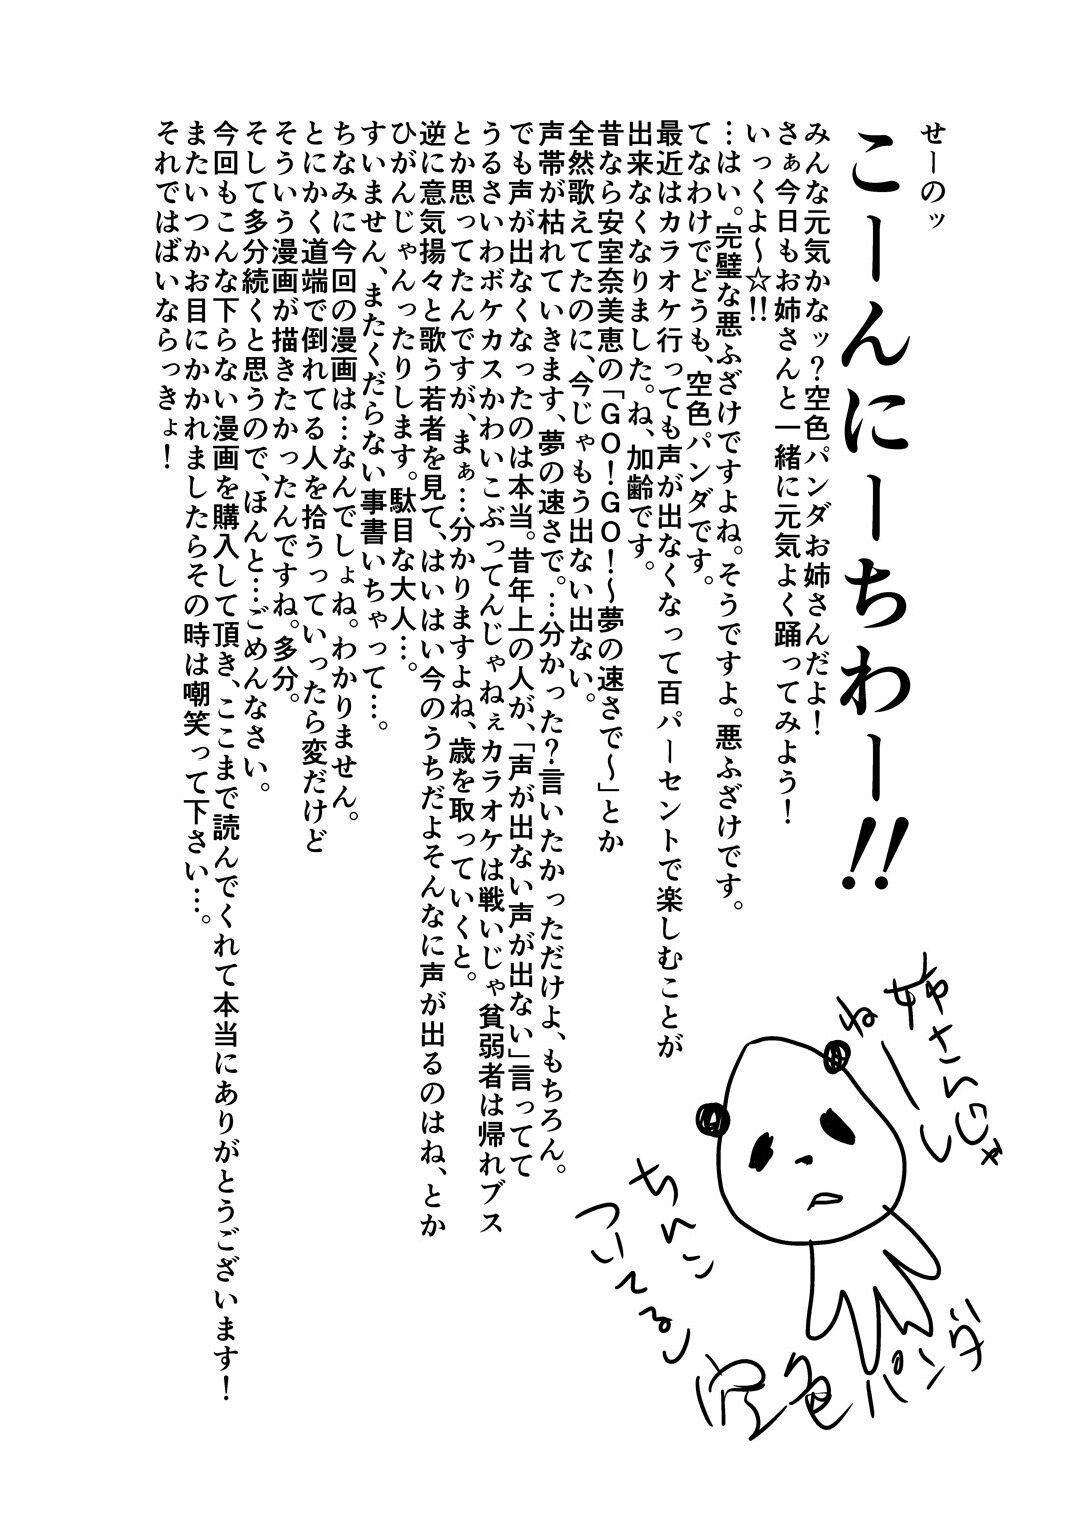 せーのッ
こーんにーちわー!!
みんな元気かなッ？空色パンダお姉さんだよ！
さぁ今日もお姉さんと一緒に元気よく踊ってみよう！
いっくよ～☆!!
…はい。完璧な悪ふざけですよね。そうですよ。悪ふざけです。
てなわけでどうも、空色パンダです。
最近はカラオケ行っても声が出なくなって百パーセントで楽しむことが
出来なくなりました。ね、加齢です。
昔なら安室奈美恵の「ＧＯ！ＧＯ！～夢の速さで～」とか
全然歌えてたのに、今じゃもう出ない出ない。
声帯が枯れていきます、夢の速さで。…分かった？言いたかっただけよ、もちろん。
でも声が出なくなったのは本当。昔年上の人が、「声が出ない声が出ない」言ってて
うるさいわボケカスかわいこぶってんじゃねぇカラオケは戦いじゃ貧弱者は帰れブス
とか思ってたんですが、まぁ…分かりますよね、歳を取っていくと。
逆に意気揚々と歌う若者を見て、はいはい今のうちだよそんなに声が出るのはね、とか
ひがんじゃんったりします。駄目な大人…。
すいません、またくだらない事書いちゃって…。
ちなみに今回の漫画は…なんでしょね。わかりません。
とにかく道端で倒れてる人を拾うっていったら変だけど
そういう漫画が描きたかったんですね。多分。
そして多分続くと思うので、ほんと…ごめんなさい。
今回もこんな下らない漫画を購入して頂き、ここまで読んでくれて本当にありがとうございます！
またいつかお目にかかれましたらその時は嘲笑って下さい…。
それではばいならっきょ！
姉さんじゃ
ねーし
ちんこ
ついてるし
空色パンダ